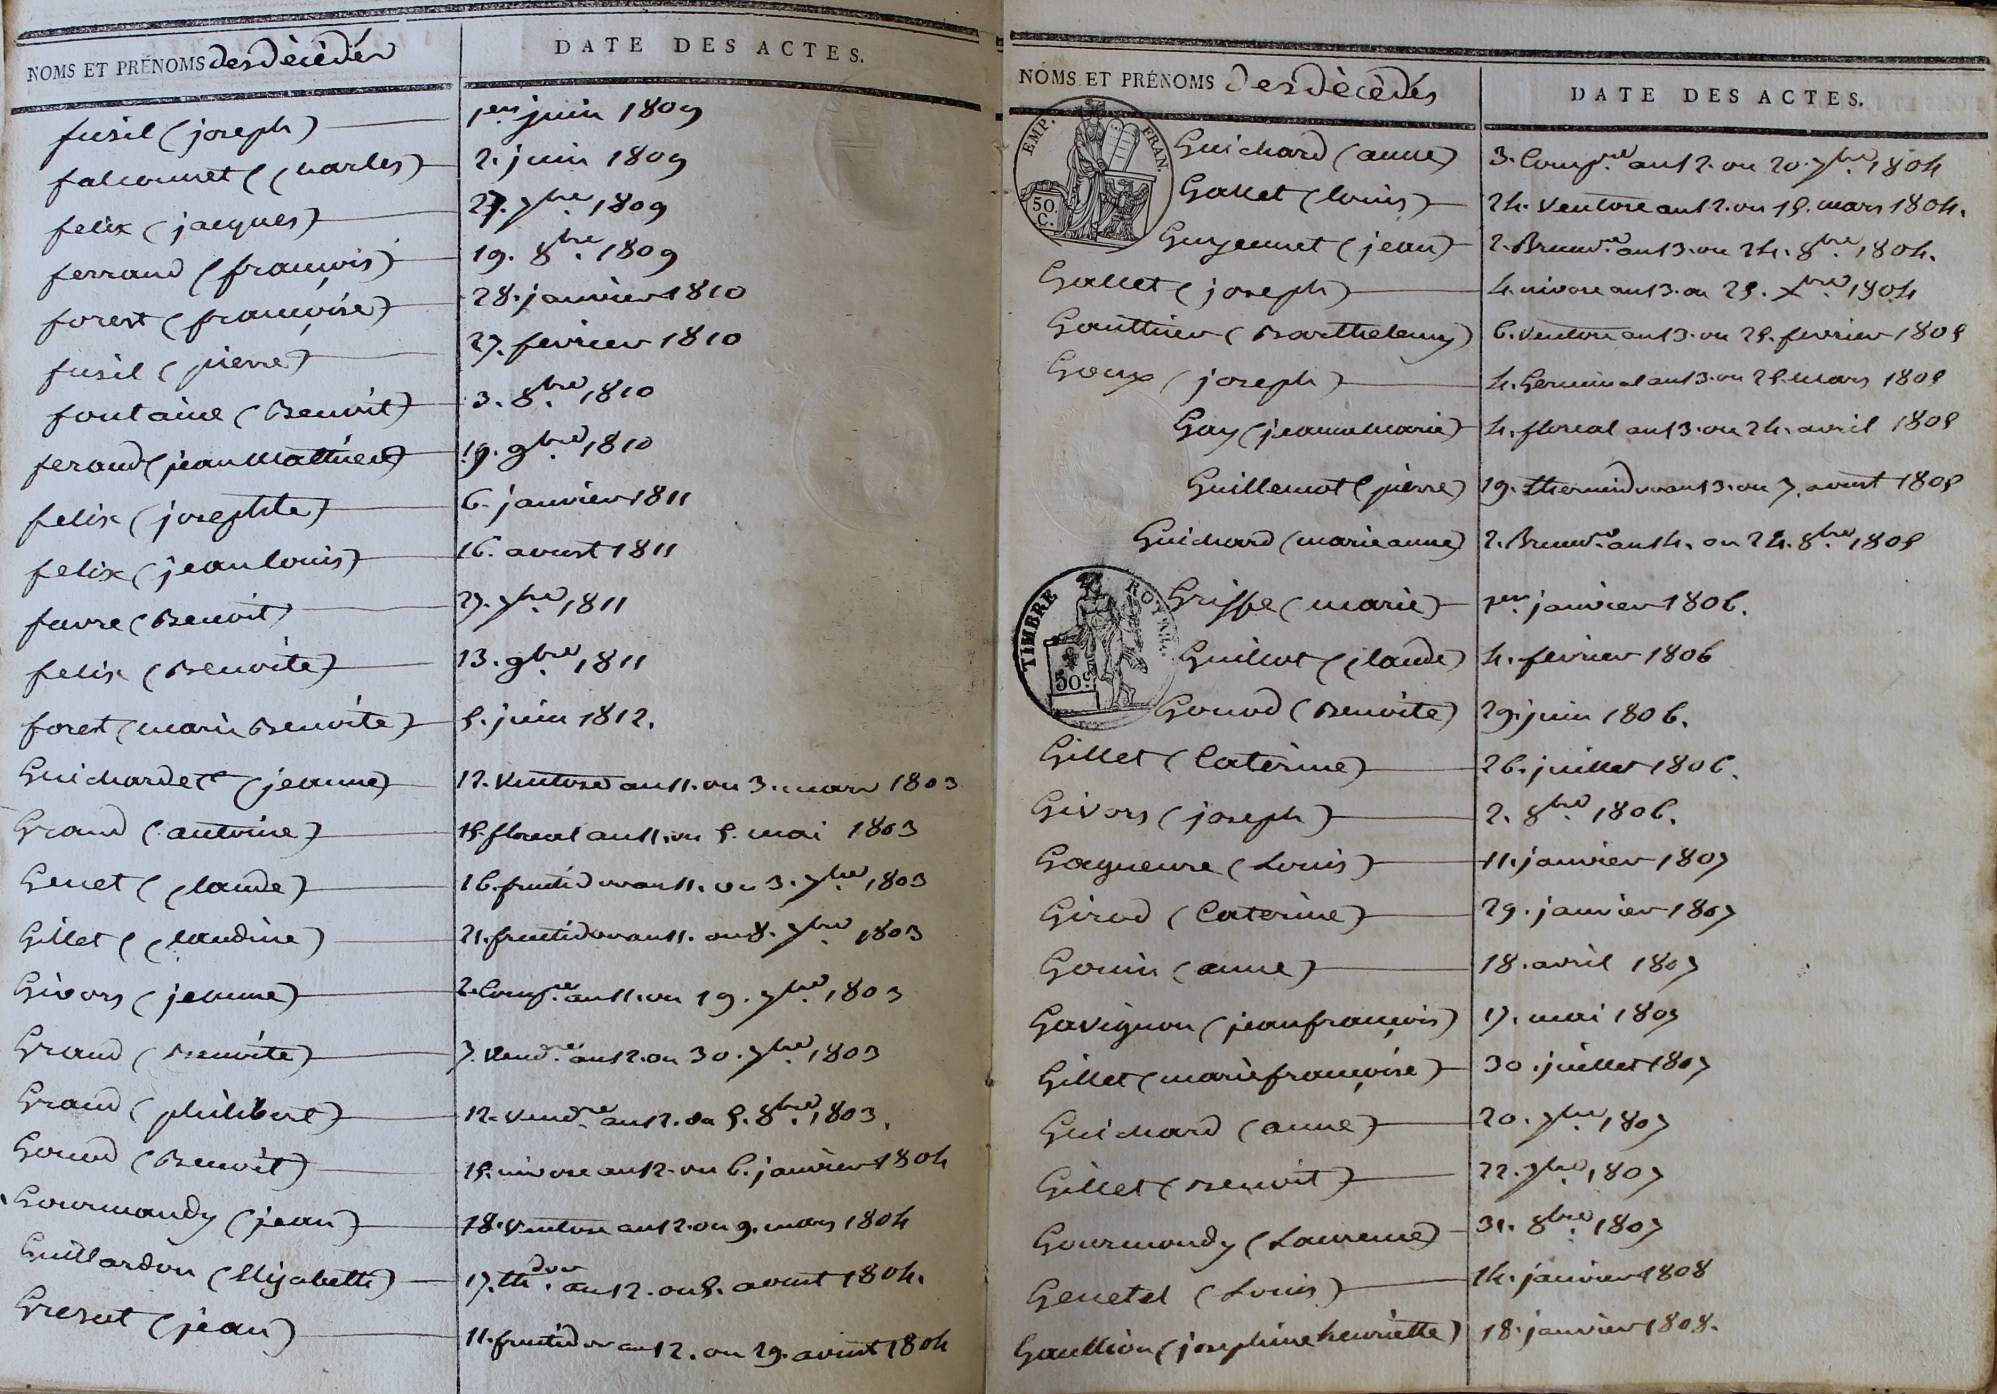 NOMS ET PRÉNOMS des décédés DATE DES ACTES.
fusil (joseph) 1er juin 1809
falconnet (Charles) 2. juin 1809
felix (jacques) 27. 7bre 1809
ferrand (françois) 19. 8bre 1809
forest (françoise) 28. janvier 1810
fusil (pierre) 27. fevrier 1810
fontaine (Benoit) 3. 8bre 1810
feraud (jean Mathieu) 19. 9bre 1810
felix (josephte) 6. janvier 1811
felix (jean louis) 16. aoust 1811
favre (Benoit) 27. 7bre 1811
felix (Benoite) 13. 9bre 1811
forest (marie Benoite) 5. juin 1812.
Guichardet (jeanne) 12. Ventose an 11. ou 3. mars 1803
Grand (antoine) 15 floreal an 11. ou 5. mai 1803
Genet (Claude) 16. fructidor an 11. ou 3. 7bre 1803
Gillet (Claudine) 21. fructidor an 11. ou 8. 7bre 1803
Givors (jeanne) 2. Compre an 11. ou 19. 7bre 1803
Grand (Benoite) 7. Vendre an 12. ou 30. 7bre 1803
Grand (philibert) 12. Vendre an 12. ou 5. 8bre 1803.
Gonod (Benoit) 15. nivose an 12. ou 6. janvier 1804
Gourmandy (jean) 18. Ventose an 12. ou 9. mars 1804
Guillardon (Elizabeth) 17. thdor an 12. ou 5. aoust 1804.
(jean) 11. fructidor an 12. ou 29. aoust 1804
NOMS ET PRÉNOMS des décédés DATE DES ACTES.
EMP. FRAN.
50. C.
Guichard (anne) 3. Compre an 12. ou 20. 7bre 1804
Gallet (louis) 24. Ventose an 12. ou 15. mars 1804.
Guyennet (jean) 2. Brumre an 13. ou 24. 8bre 1804.
Gallet (joseph) 4. nivose an 13. ou 25. Xbre 1804
Gauthier (Barthelemy) 6. Ventose an 13. ou 25. fevrier 1805
Goux (joseph) 4. Germinal an 13. ou 25. mars 1805
Gay (jeanne Marie) 4. floreal an 13. ou 24. avril 1805
Guillemot (pierre) 19. thermidor an 13. ou 7. aoust 1805
Guichard (marie anne) 2. Brumre an 14. ou 24. 8bre 1805
TIMBRE ROYAL
50 c
Griffe (marie) 1er janvier 1806.
Guillot (Claude) 4. fevrier 1806
Gonod (Benoite) 29. juin 1806.
Gillet (Caterine) 26. juillet 1806.
Givors (joseph) 2. 8bre 1806.
Gagneure (Louis) 11. janvier 1807
Girod (Caterine) 29. janvier 1807
Gonin (anne) 18. avril 1807
Gavignon (jean françois) 17. mai 1807
Gillet (marie françoise) 30. juillet 1807
Guichard (anne) 20. 7bre 1807
Gillet (Benoit) 22. 7bre 1807
Gourmondy (Laurence) 31. 8bre 1807
Genetet (Louis) 14. janvier 1808
(josephine henriette) 18. janvier 1808.